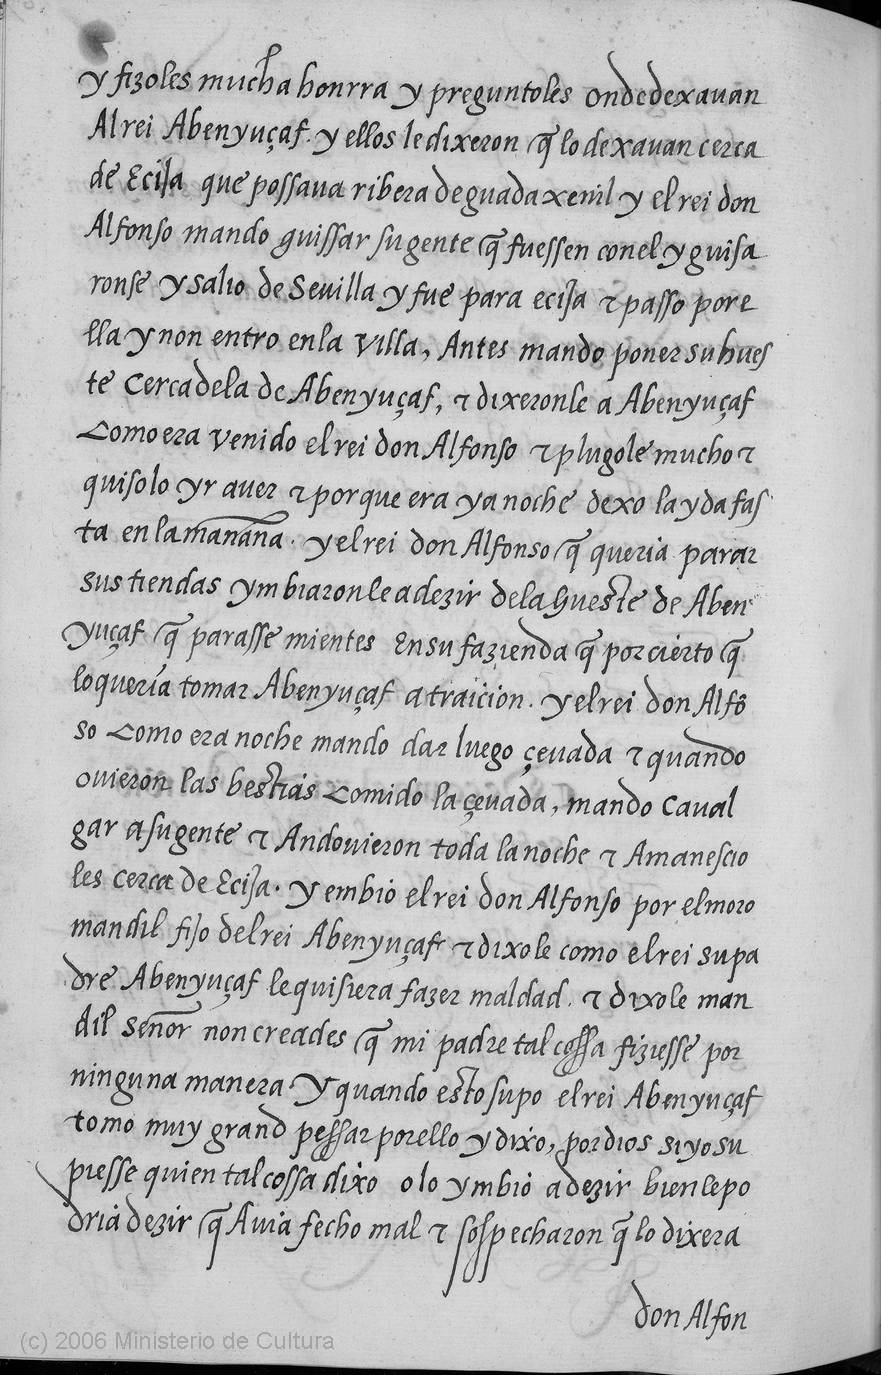 y fizoles mucha honrra y preguntoles ondedexauan
Al rei Abenyuçaf. y ellos ledixeron q̃ lo dexauan cerca
de Ecija que possaua ribera deguadaxenil y el rei don
Alfonso mando guissar sugente q̃ fuessen conel y guisa
ronse y salio de Seuilla y fue para ecija ⁊ passo pore
lla y non entro enla villa, Antes mando poner su hues
te cercadela de Abenyuçaf, ⁊ dixeronle a Abenyuçaf
Como era venido el rei don Alfonso ⁊ plugole mucho ⁊
quisolo yr auer ⁊ porque era ya noche dexo la yda fas
ta enla mañana. y el rei don Alfonso q̃ queria parar
sus tiendas ymbiaronle adezir dela hueste de Aben
yuçaf q̃ parasse mientes Ensu fazienda q̃ por cierto q̃
loqueria tomar Abenyuçaf atraicion. y el rei don Alfõ
so Como era noche mando dar luego çeuada ⁊ quando
ouieron las bestias Comido la çeuada, mando Caual
gar asugente ⁊ Andouieron toda la noche ⁊ Amanescio
les cerca de Ecija. y embio el rei don Alfonso por el moro
mandil fijo del rei Abenyuçaf ⁊ dixole como el rei supa
dre Abenyuçaf le quisiera fazer maldad. ⁊ dixole man
dil señor non creades q̃ mi padre tal cossa fiziesse por
ninguna manera y quando esto supo el rei Abenyuçaf
tomo muy grand pessar porello y dixo, por dios si yo su
piesse quien tal cossa dixo o lo ymbio adezir bien le po
dria dezir q̃ Auia fecho mal ⁊ sospecharon q̃ lo dixera
don Alfon
(c) 2006 Ministerio de Cultura